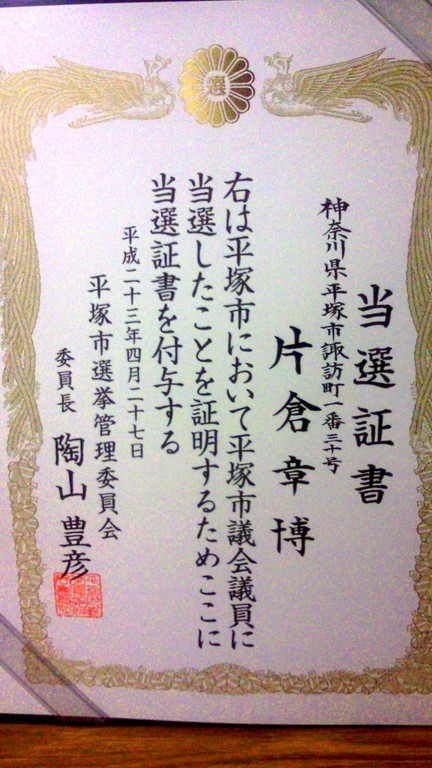 当選証書
神奈川県平塚市諏訪町一番三十号
片倉章博
右は平塚市において平塚市議会議員に
当選したことを証明するためここに
当選証書を付与する
平成二十三年四月二十七日
平塚市選挙管理委員会
委員長 陶山豊彦